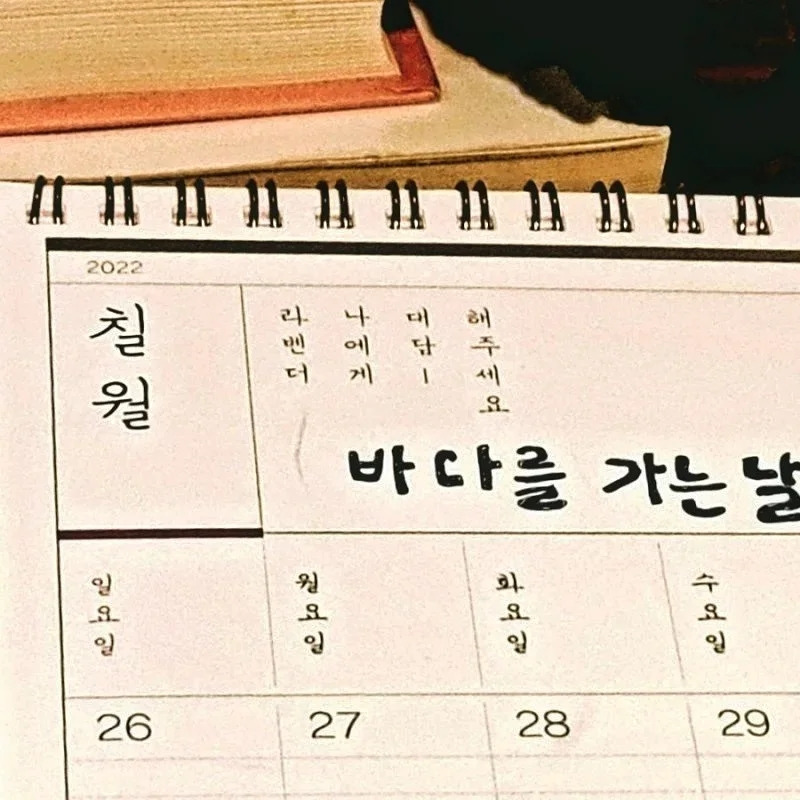 2022
칠월
라벤더
나에게
대답ㅣ
해주세요
바다를 가는 날
일요일
월요일
화요일
수요일
26
27
28
29